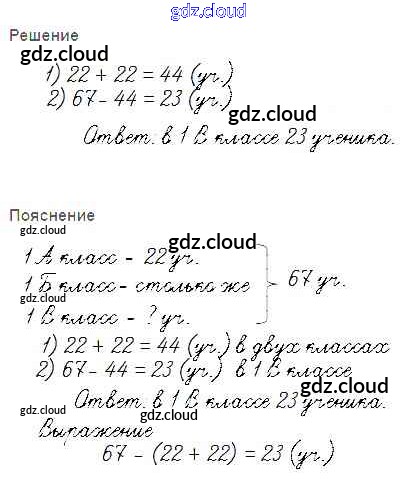 gdz.cloud
Решение
gdz.cloud
1) 22 + 22 = 44 (уч.)
2) 67 - 44 = 23 (уч.)
gdz.cloud
Ответ. в 1 В классе 23 ученика.
gdz.cloud
Пояснение
gdz.cloud
gdz.cloud
1 А класс - 22 уч.
1 Б класс - столько же
67 уч.
gdz.cloud
1 В класс - ? уч.
gdz.cloud
1) 22 + 22 = 44 (уч.) в двух классах
2) 67 - 44 = 23 (уч.) в 1 В классе
gdz.cloud
Ответ. в 1 В классе 23 ученика.
gdz.cloud
gdz.cloud
Выражение
67 - (22 + 22) = 23 (уч.)